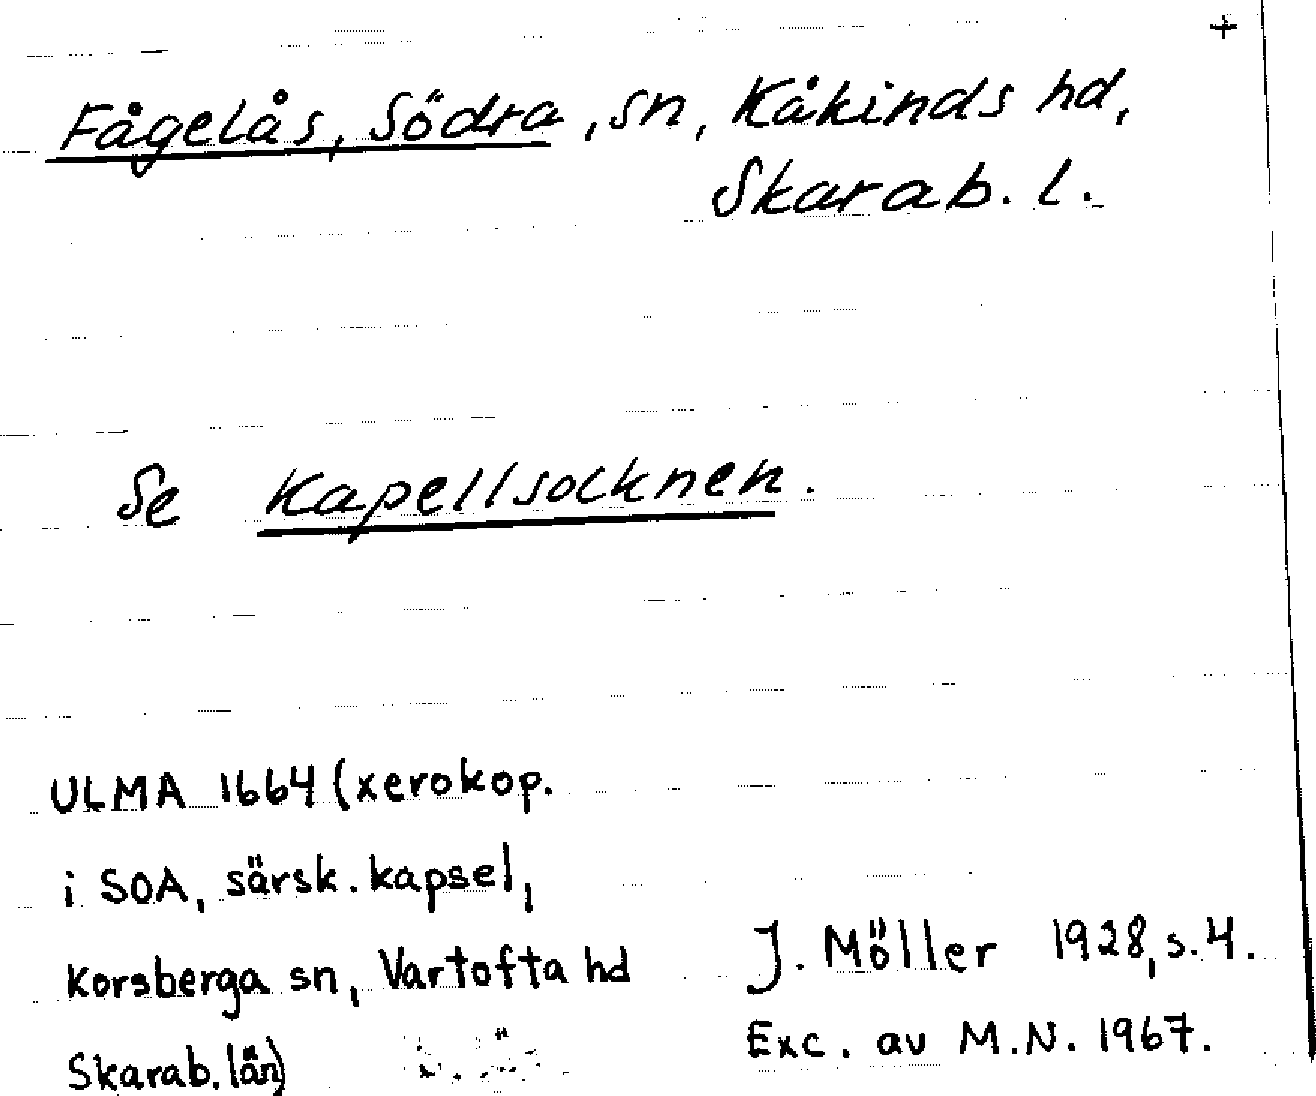 +
Fågelås, Södra, sn, Kåkinds hd,
Skarab. l.
Se Kapellsocknen.
ULMA 1664 (xerokop.
i SOA, särsk. kapsel,
Korsberga sn, Vartofta hd
Skarab. län)
J. Möller 1928, s. 4.
Exc. av M.N. 1967.